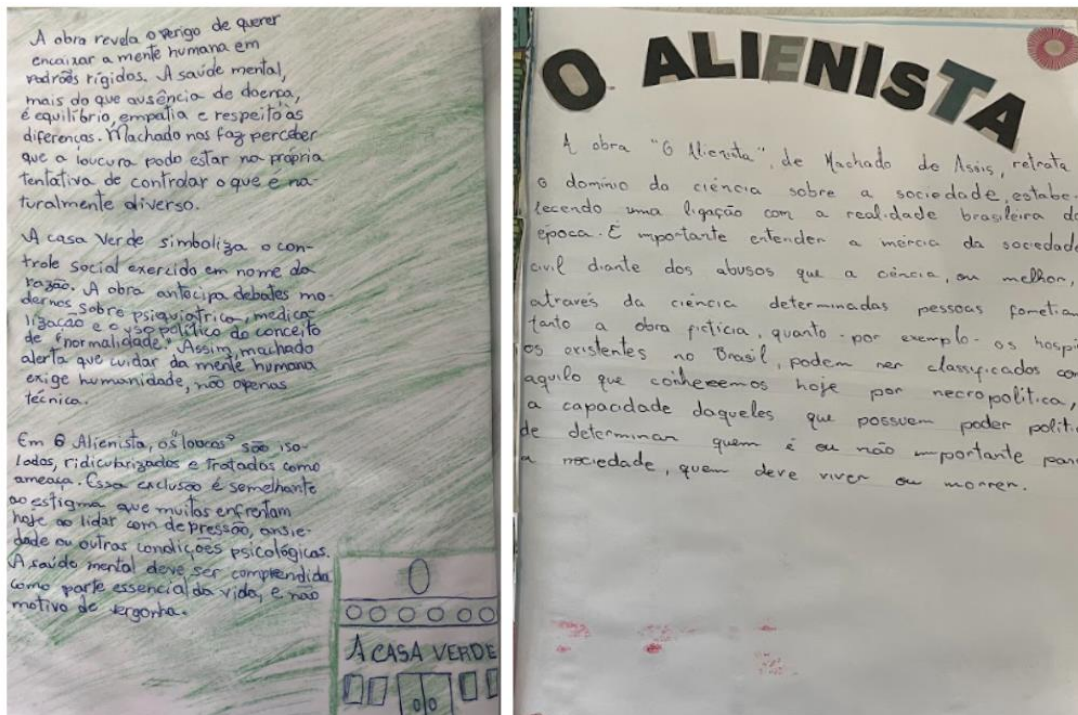 A obra revela o perigo de querer
encaixar a mente humana em
padrões rígidos. A saúde mental,
mais do que ausência de doença,
é equilíbrio, empatia e respeito às
diferenças. Machado nos faz perceber
que a loucura pode estar na própria
tentativa de controlar o que é na-
turalmente diverso.
A casa Verde simboliza o con-
trole social exercido em nome da
razão. A obra antecipa debates mo-
dernos sobre psiquiatrica, medica
lização e o uso político do conceito
de "normalidade." Assim, machado
alerta que cuidar da mente humana
exige humanidade, não apenas
técnica.
Em O Alienista, os "loucos" são iso-
lados, ridicularizados e tratados como
ameaça. Essa exclusão é semelhante
ao estigma que muitos enfrentam
hoje ao lidar com depressão, ansie-
dade ou outras condições psicológicas.
A saúde mental deve ser compreendida
como parte essencial da vida, e não
motivo de vergonha.
A CASA VERDE
O ALIENISTA
A obra "O Alienista", de Machado de Assis, retrata
o domínio da ciência sobre a sociedade, estabe-
lecendo uma ligação com a realidade brasileira da
época. É importante entender a inércia da sociedade
civil diante dos abusos que a ciência, ou melhor,
através da ciência determinadas pessoas
tanto a obra fictícia, quanto - por exemplo - os
os existentes no Brasil, podem ser classificados
aquilo que conhecemos hoje por necropolítica,
a capacidade daqueles que possuem poder
de determinar quem é ou não importante para
a sociedade, quem deve viver ou morrer.